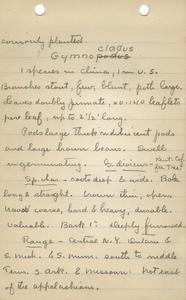 commonly planted.
Gymnocladus
1 species in China, 1 in U.S.
Branches stout, few, blunt, pith large.
Leaves doubly pinnate, no. leaflets
per leaf, up to 2 1/2' long.
Pods large thick indehiscent pods
and large brown beans. Swell
in germinating. G. dioicus - Kent. Cof-
fee Tree.
Sp. char - roots deep & wide. Bole
long & straight. Crown thin, open.
Wood coarse, hard & heavy, durable.
Valuable. Bark 1": deeply furrowed.
Range - Central N.Y. Ontario &
S. Mich. & S. Minn. south to middle
Tenn. S. ark. & Missouri: Not east
of the appalachians.